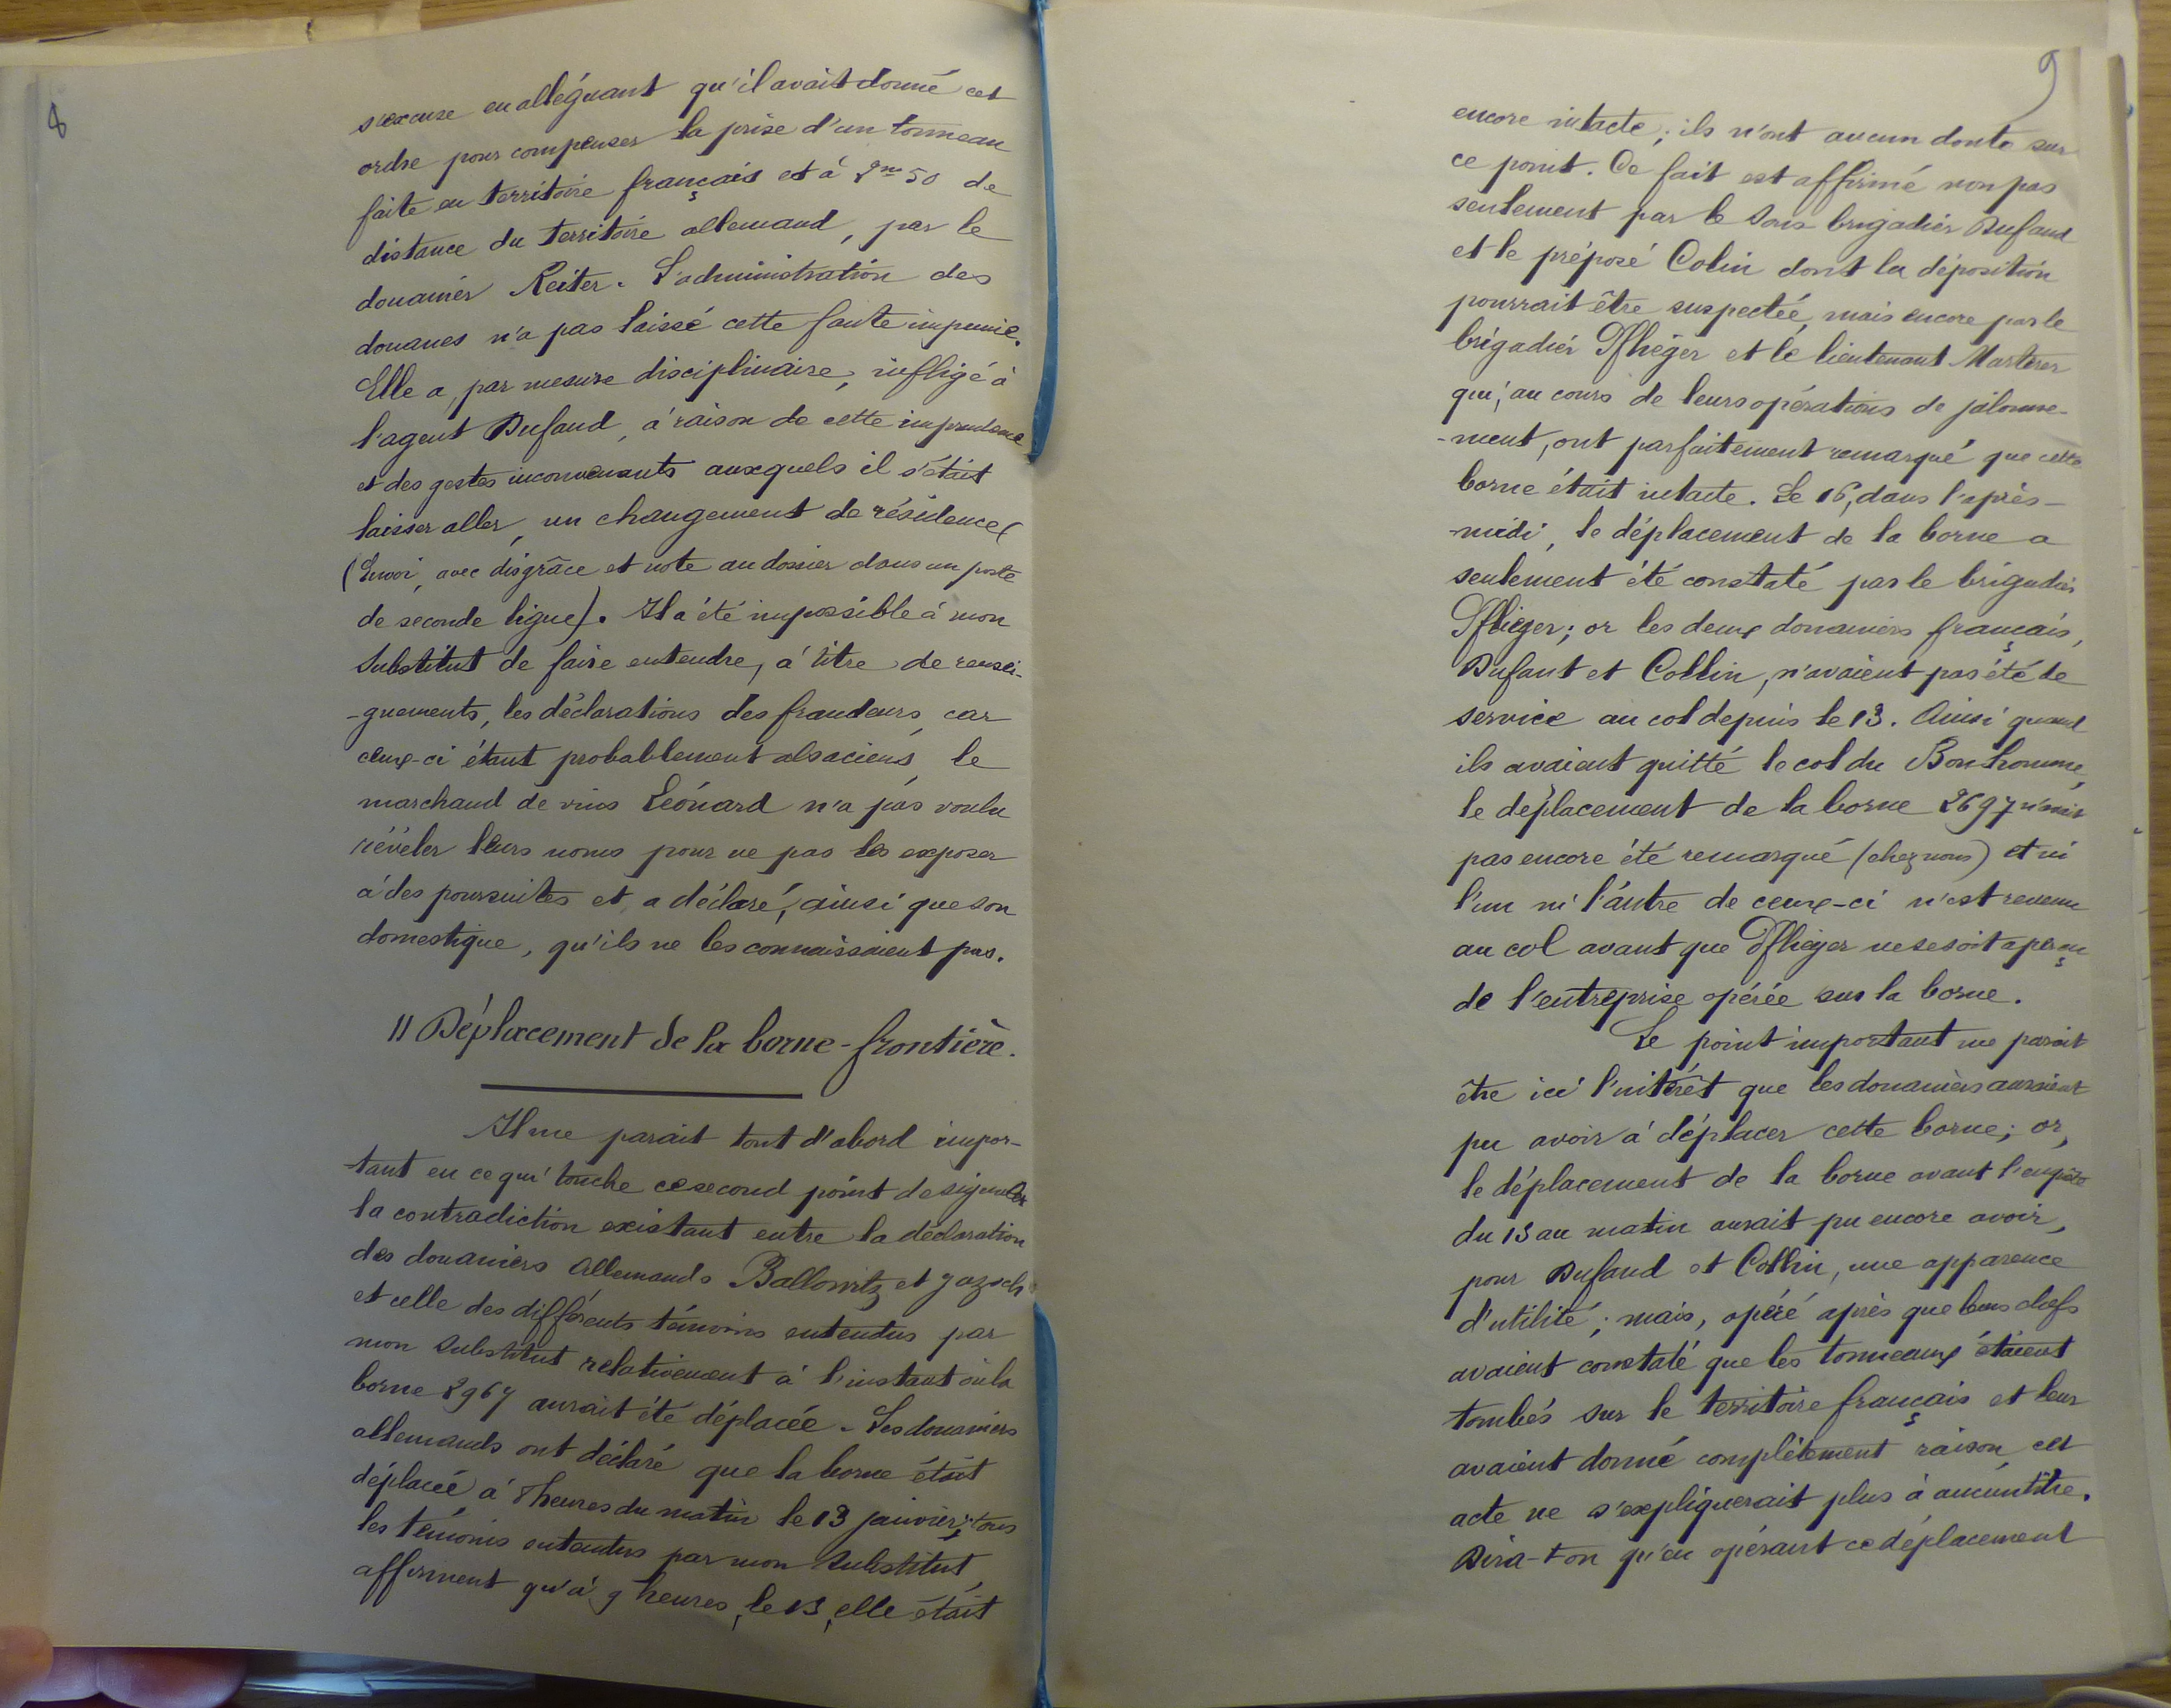 8
s'excuse en alléguant qu'il avait donné cet
ordre pour compenser la prise d'un tonneau
faite en territoire français et à 2m 50 de
distance du territoire allemand, par le
douanier Reiter. L'administration des
douanes n'a pas laissé cette faute impunie.
Elle a, par mesure disciplinaire, infligé à
l'agent Dufaud, à raison de cette imprudence
et des gestes inconvenants auxquels il s'était
laisser aller, un changement de résidence
(Envoi, avec disgrâce et note au dossier dans un poste
de seconde ligne). Il a été impossible à mon
Substitut de faire entendre, à titre de rensei-
-gnements, les déclarations des fraudeurs, car
ceux-ci étant probablement alsaciens, le
marchand de vins Léonard n'a pas voulu
révéler leurs noms pour ne pas les exposer
à des poursuites et a déclaré, ainsi que son
domestique, qu'ils ne les connaissaient pas.
II Déplacement de la borne-frontière.
Il me parait tout d'abord impor-
-tant en ce qui touche ce second point de signaler
la contradiction existant entre la déclaration
des douaniers Allemands Ballowitz et
et celle des différents témoins entendus par
mon Substitut relativement à l'instant où la
borne 2967 aurait été déplacée. Les douaniers
allemands ont déclaré que la borne était
déplacée à 8 heures du matin le 13 janvier; tous
les témoins entendus par mon Substitut,
affirment qu'à 9 heures, le 13, elle était
9
encore intacte; ils n'ont aucun doute sur
ce point. Ce fait est affirmé non pas
seulement par le sous brigadier Dufaud
et le préposé Colin dont la déposition
pourrait être suspectée, mais encore par le
brigadier Pflieger et le lieutenant
qui, au cours de leurs opérations de jalonne-
-ment, ont parfaitement remarqué que cette
borne était intacte. Le 16, dans l'après-
-midi, le déplacement de la borne a
seulement été constaté par le brigadier
Pflieger; or les deux douaniers français,
Dufaut et Collin, n'avaient pas été de
service au col depuis le 13. Ainsi quand
ils avaient quitté le col du Bonhomme,
le déplacement de la borne 2697 n'avait
pas encore été remarqué (chez nous) et ni
l'un ni l'autre de ceux-ci n'est revenu
au col avant que Pflieger ne se soit aperçu
de l'entreprise opérée sur la borne.
Le point important me parait
être ici l'intérêt que les douaniers auraient
pu avoir à déplacer cette borne; or,
le déplacement de la borne avant l'enquête
du 13 au matin aurait pu encore avoir,
pour Dufaud et Collin, une apparence
d'utilité; mais, opéré après que leurs chefs
avaient constaté que les tonneaux étaient
tombés sur le territoire français et leur
avaient donné complètement raison, cet
acte ne s'expliquerait plus à aucun titre.
Dira-t-on qu'en opérant ce déplacement